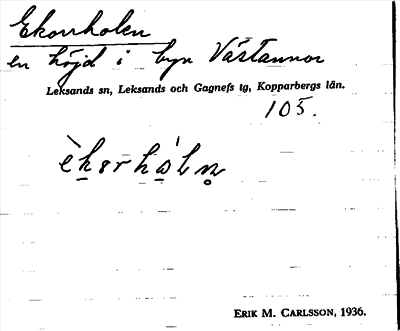 Ekorrholen
en höjd i byn Västannor
Leksands sn, Leksands och Gagnefs tg, Kopparbergs län.
105.
èkərhòln̥
ERIK M. CARLSSON, 1936.